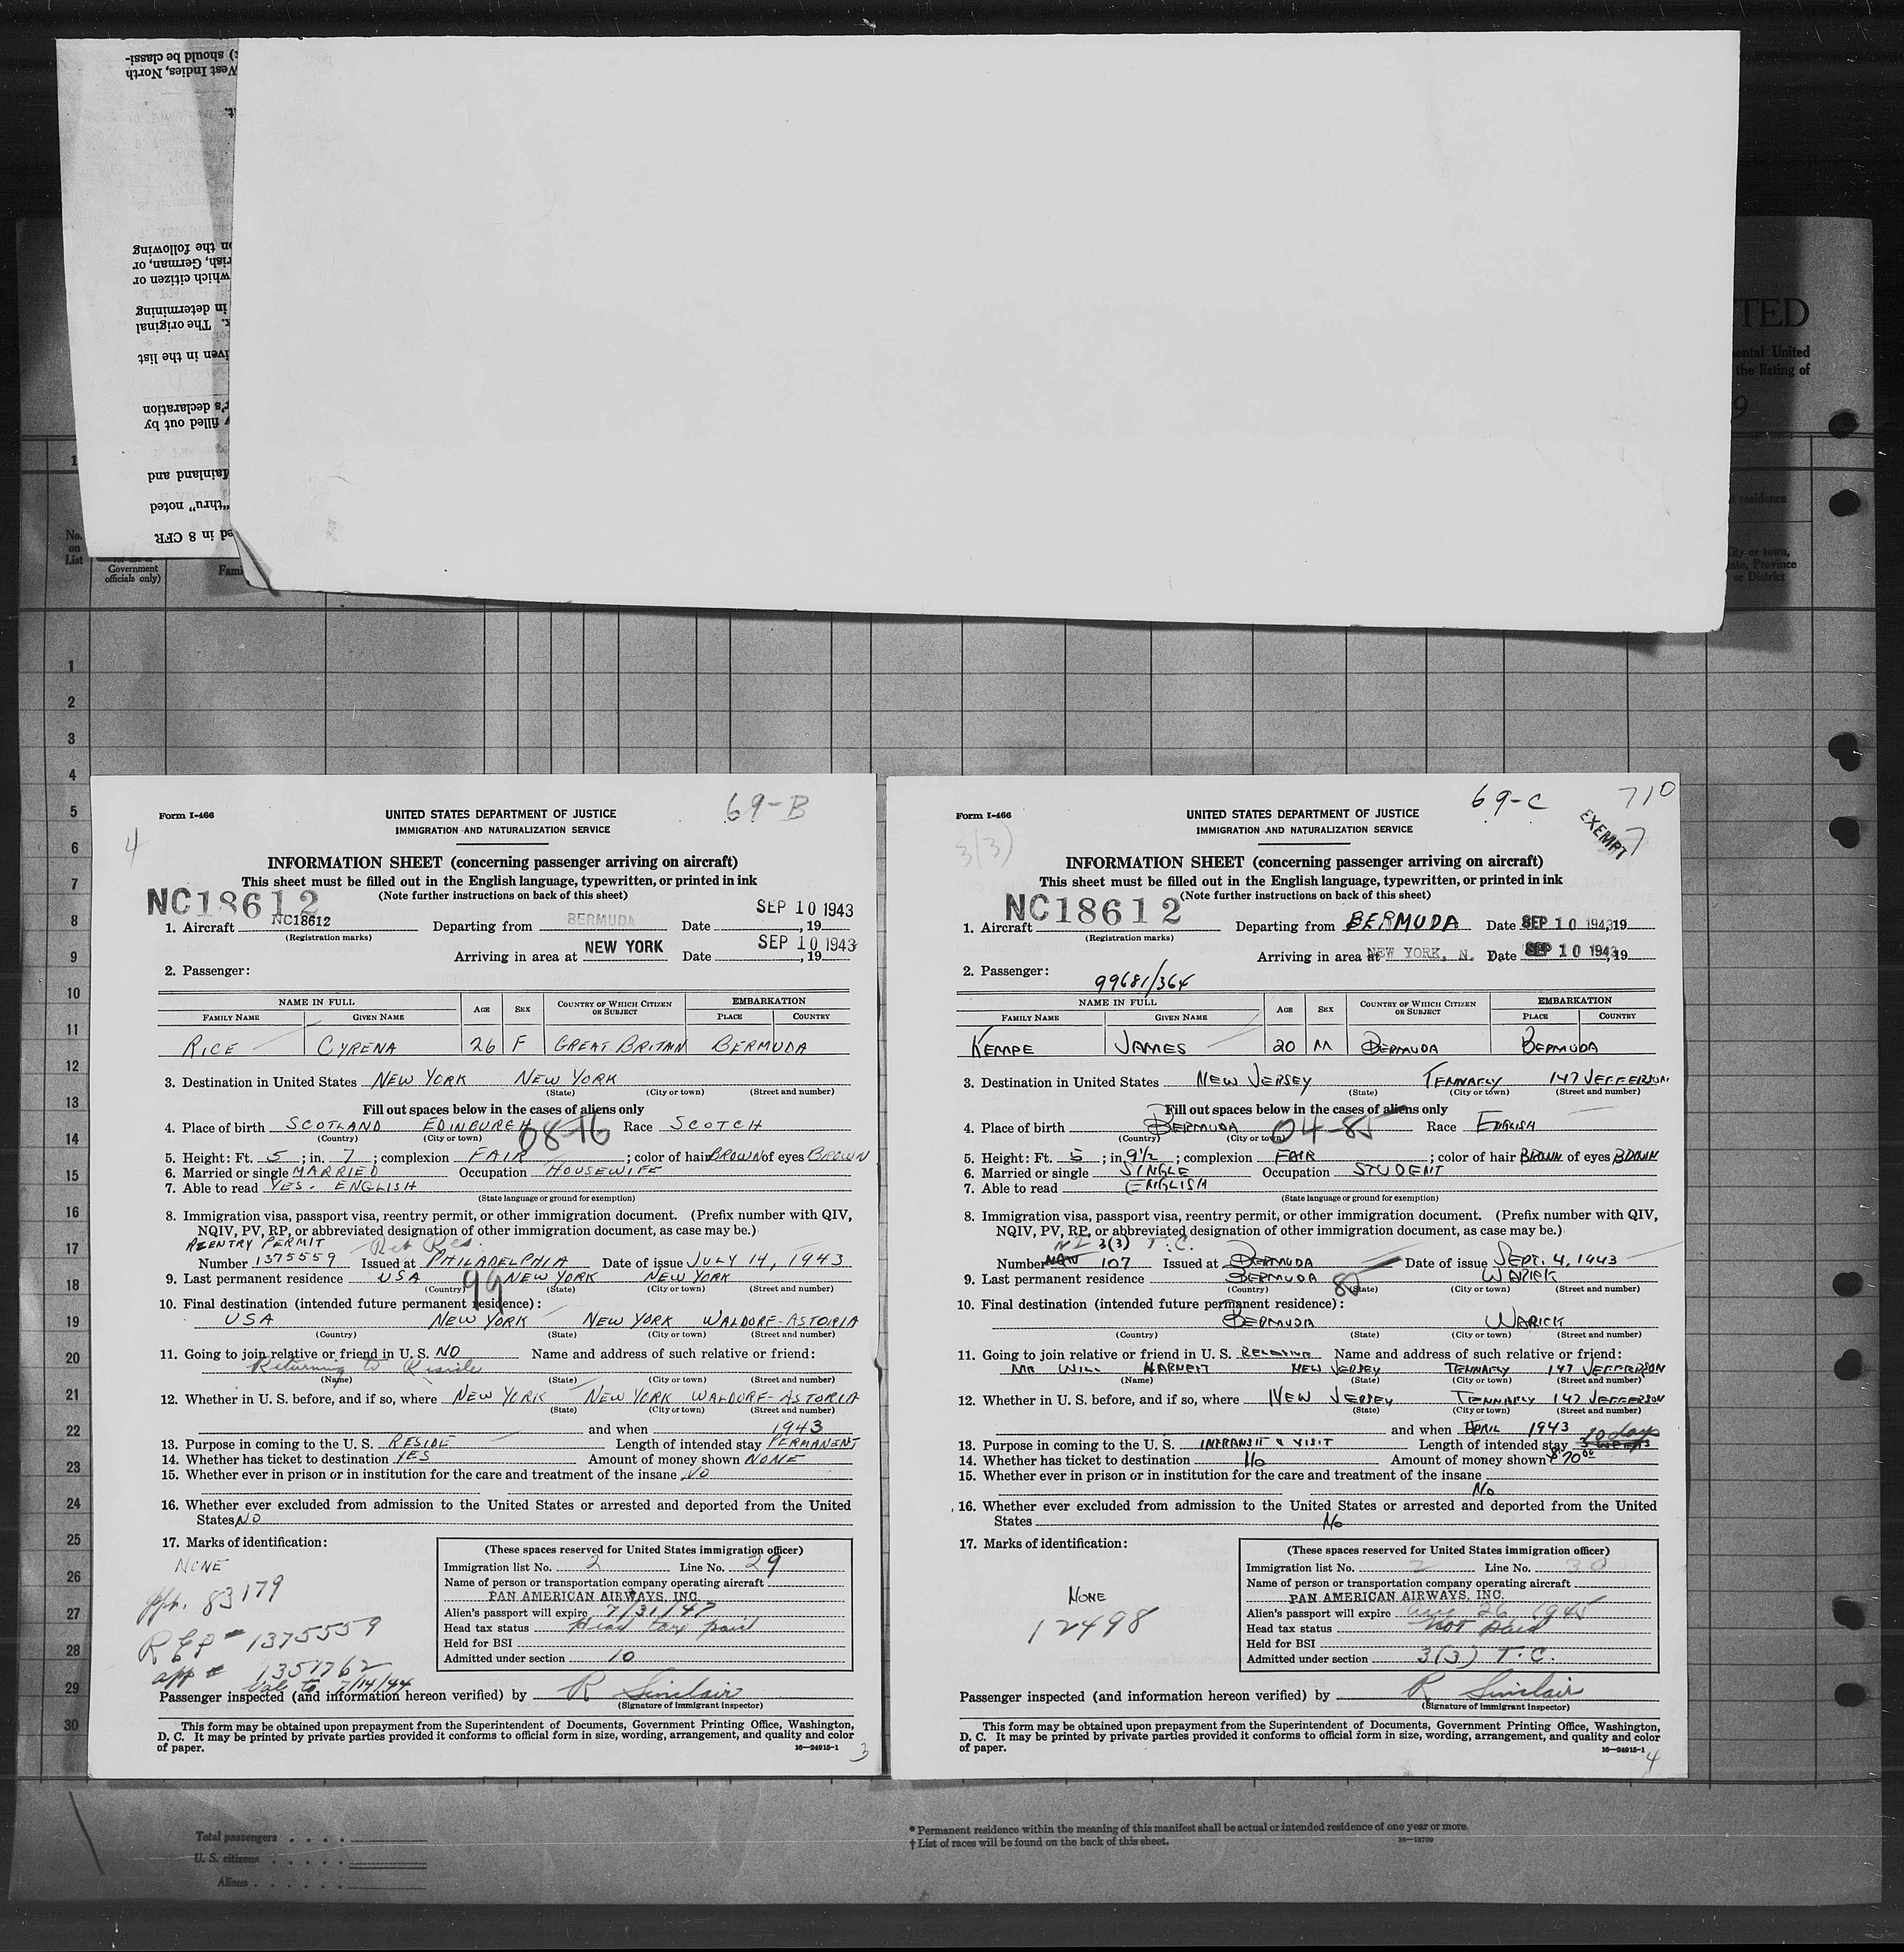 TED
ental United
the listing of
9
residence
ity or town,
ate, Province
or District
No.
on
List
Government
officials only)
Fami
ed in 8 CFR
"thru" noted
Mainland and
y filled out by
r's declaration
iven in the list
k. The original
in determining
which citizen or
rish, German, or
on the following
West Indies, North
) should be classi-
1
2
3
4
5
6
7
8
9
10
11
12
13
14
15
16
17
18
19
20
21
22
23
24
25
26
27
28
29
30
Form I-466
69-B
4
UNITED STATES DEPARTMENT OF JUSTICE
IMMIGRATION AND NATURALIZATION SERVICE
INFORMATION SHEET (concerning passenger arriving on aircraft)
This sheet must be filled out in the English language, typewritten, or printed in ink
(Note further instructions on back of this sheet)
NC18612
1. Aircraft NC18612 Departing from BERMUDA Date SEP 10 1943, 19
(Registration marks)
Arriving in area at NEW YORK Date SEP 10 1943, 19
2. Passenger:
NAME IN FULL AGE SEX COUNTRY OF WHICH CITIZEN OR SUBJECT EMBARKATION
FAMILY NAME GIVEN NAME PLACE COUNTRY
RICE CYRENA 26 F GREAT BRITAIN BERMUDA
3. Destination in United States NEW YORK NEW YORK
(State) (City or town) (Street and number)
Fill out spaces below in the cases of aliens only
4. Place of birth SCOTLAND EDINBURGH 08-16 Race SCOTCH
(Country) (City or town)
5. Height: Ft. 5; in. 7; complexion FAIR; color of hair BROWN of eyes BROWN
6. Married or single MARRIED Occupation HOUSEWIFE
7. Able to read YES. ENGLISH
(State language or ground for exemption)
8. Immigration visa, passport visa, reentry permit, or other immigration document. (Prefix number with QIV,
NQIV, PV, RP, or abbreviated designation of other immigration document, as case may be.)
REENTRY PERMIT Ret Res.
Number 1375559 Issued at PHILADELPHIA Date of issue JULY 14, 1943
9. Last permanent residence USA 99 NEW YORK NEW YORK
(Country) (State) (City or town) (Street and number)
10. Final destination (intended future permanent residence):
USA NEW YORK NEW YORK WALDORF-ASTORIA
(Country) (State) (City or town) (Street and number)
11. Going to join relative or friend in U. S. NO Name and address of such relative or friend:
Returning to Reside
(Name) (State) (City or town) (Street and number)
12. Whether in U. S. before, and if so, where NEW YORK NEW YORK WALDORF-ASTORIA
(State) (City or town) (Street and number)
and when 1943
13. Purpose in coming to the U. S. RESIDE Length of intended stay PERMANENT
14. Whether has ticket to destination YES Amount of money shown NONE
15. Whether ever in prison or in institution for the care and treatment of the insane NO
16. Whether ever excluded from admission to the United States or arrested and deported from the United
States NO
17. Marks of identification:
NONE
ppt. 83179
REP # 1375559
app # 1351762
Val to 7/14/44
(These spaces reserved for United States immigration officer)
Immigration list No. 2 Line No. 29
Name of person or transportation company operating aircraft
PAN AMERICAN AIRWAYS, INC.
Alien's passport will expire 7/31/47
Head tax status Head tax paid
Held for BSI
Admitted under section 10
Passenger inspected (and information hereon verified) by R Sinclair
(Signature of immigrant inspector)
This form may be obtained upon prepayment from the Superintendent of Documents, Government Printing Office, Washington,
D. C. It may be printed by private parties provided it conforms to official form in size, wording, arrangement, and quality and color
of paper. 16—24915-1
3
Form I-466
69-C
710
EXEMPT
7
3(3)
UNITED STATES DEPARTMENT OF JUSTICE
IMMIGRATION AND NATURALIZATION SERVICE
INFORMATION SHEET (concerning passenger arriving on aircraft)
This sheet must be filled out in the English language, typewritten, or printed in ink
(Note further instructions on back of this sheet)
NC18612
1. Aircraft Departing from BERMUDA Date SEP 10 1943, 19
(Registration marks)
Arriving in area at NEW YORK, N. Date SEP 10 1943, 19
2. Passenger:
99681/364
NAME IN FULL AGE SEX COUNTRY OF WHICH CITIZEN OR SUBJECT EMBARKATION
FAMILY NAME GIVEN NAME PLACE COUNTRY
KEMPE JAMES 20 M BERMUDA BERMUDA
3. Destination in United States NEW JERSEY TENNAFLY 147 JEFFERSON
(State) (City or town) (Street and number)
Fill out spaces below in the cases of aliens only
4. Place of birth BERMUDA 04-85 Race ENGLISH
(Country) (City or town)
5. Height: Ft. 5; in. 9½; complexion FAIR; color of hair BROWN of eyes BROWN
6. Married or single SINGLE Occupation STUDENT
7. Able to read ENGLISH
(State language or ground for exemption)
8. Immigration visa, passport visa, reentry permit, or other immigration document. (Prefix number with QIV,
NQIV, PV, RP, or abbreviated designation of other immigration document, as case may be.)
NI 3(3) T.C.
Number 107 Issued at BERMUDA Date of issue SEPT. 4, 1943
9. Last permanent residence BERMUDA 85 WARICK
(Country) (State) (City or town) (Street and number)
10. Final destination (intended future permanent residence):
BERMUDA WARICK
(Country) (State) (City or town) (Street and number)
11. Going to join relative or friend in U. S. RELATIVE Name and address of such relative or friend:
MR WILL HARNETT NEW JERSEY TENNAFLY 147 JEFFERSON
(Name) (State) (City or town) (Street and number)
12. Whether in U. S. before, and if so, where NEW JERSEY TENNAFLY 147 JEFFERSON
(State) (City or town) (Street and number)
and when APRIL 1943
13. Purpose in coming to the U. S. INTRANSIT & VISIT Length of intended stay 10 days
14. Whether has ticket to destination No Amount of money shown $70.00
15. Whether ever in prison or in institution for the care and treatment of the insane
No
16. Whether ever excluded from admission to the United States or arrested and deported from the United
States No
17. Marks of identification:
NONE
12498
(These spaces reserved for United States immigration officer)
Immigration list No. 2 Line No. 30
Name of person or transportation company operating aircraft
PAN AMERICAN AIRWAYS, INC.
Alien's passport will expire Aug 26 1945
Head tax status Not paid
Held for BSI
Admitted under section 3(3) T.C.
Passenger inspected (and information hereon verified) by R Sinclair
(Signature of immigrant inspector)
This form may be obtained upon prepayment from the Superintendent of Documents, Government Printing Office, Washington,
D. C. It may be printed by private parties provided it conforms to official form in size, wording, arrangement, and quality and color
of paper. 16—24915-1
4
Total passengers
U. S. citizens
Aliens
* Permanent residence within the meaning of this manifest shall be actual or intended residence of one year or more.
† List of races will be found on the back of this sheet. 16—18709